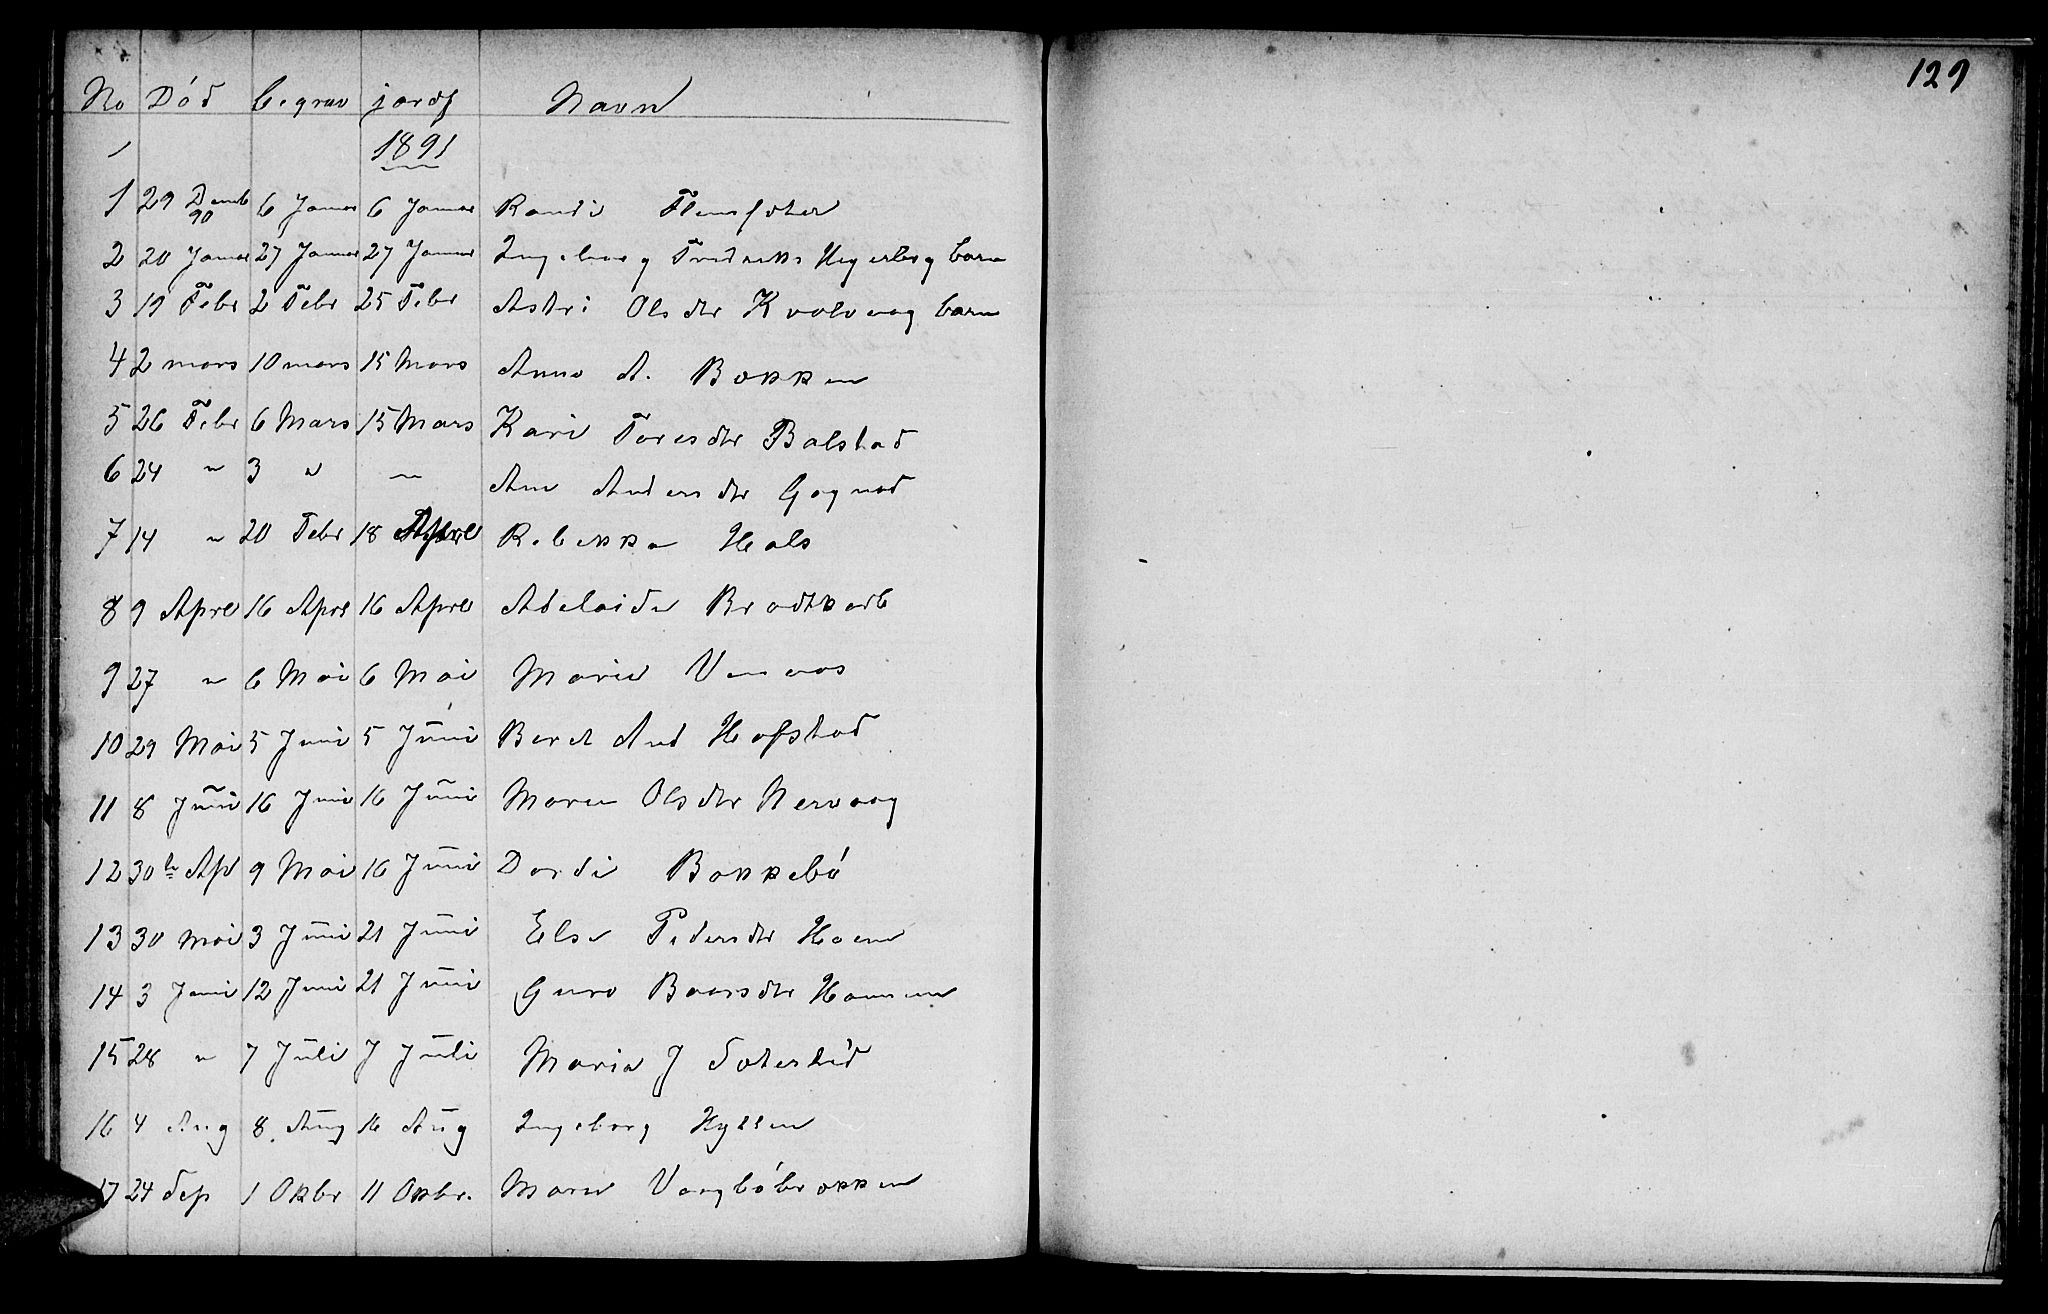 129
No Død begrav jordf Navn
1891
1 29 Decmb 90 6 Januar 6 Januar Randi
2 20 Januar 27 Januar 27 Januar Ingeborg Fredriks Hegerberg barn
3 19 Febr 2 Febr 25 Febr Astri Olsdtr Kvalvaag barn
4 2 mars 10 mars 15 Mars Anne A. Bakken
5 26 Febr 6 Mars 15 Mars Kari Toresdtr Bolstad
6 24 " 3 " " Ane Andersdtr Gagnad
7 14 " 20 Febr 18 April Rebekka Hals
8 9 April 16 April 16 April Adelaide Brodtkorb
9 27 " 6 Mai 6 Mai Marie
10 29 Mai 5 Juni 5 Juni Beret And Hofstad
11 8 Juni 16 Juni 16 Juni Maren Olsdtr Nervaag
12 30te Apl 9 Mai 16 Juni Dordi Bakkebø
13 30 mai 3 Juni 21 Juni Else Pedersdtr Hoem
14 3 Juni 12 Juni 21 Juni Guro Baarsdtr
15 28 " 7 Juli 7 Juli Maria J
16 4 Aug 8 Aug 16 Aug Ingeborg Hyllen
17 24 Sep 1 Okbr 11 Okbr. Maren Vaagbøbakken